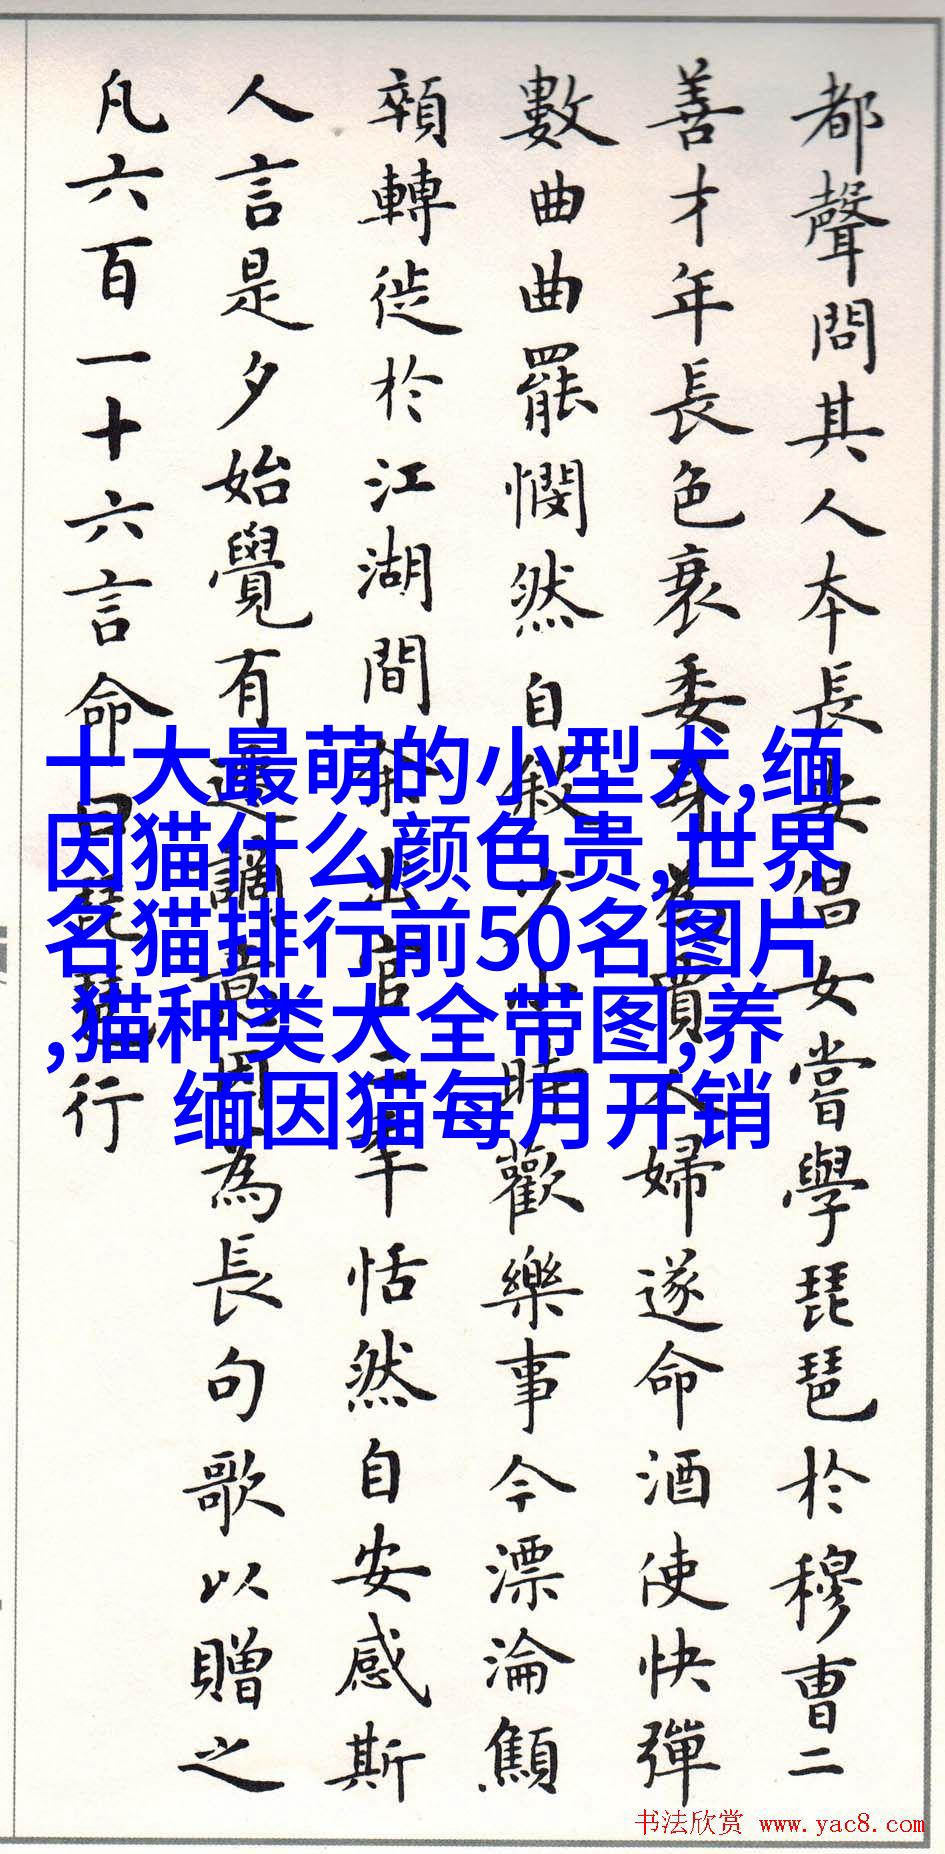 都聲問其人本長安昌女嘗學琵琶於穆曹二
善才年長色衰委身為賈人婦遂命酒使快彈
數曲曲罷憫然自敘少小時歡樂事今漂淪顦
顇轉徙於江湖間余出官二年恬然自安感斯
人言是夕始覺有遷謫意因為長句歌以贈之
凡六百一十六言命曰琵琶行
十大最萌的小型犬,缅
因猫什么颜色贵,世界
名猫排行前50名图片
,猫种类大全带图,养
缅因猫每月开销
书法欣赏 www.yac8.com